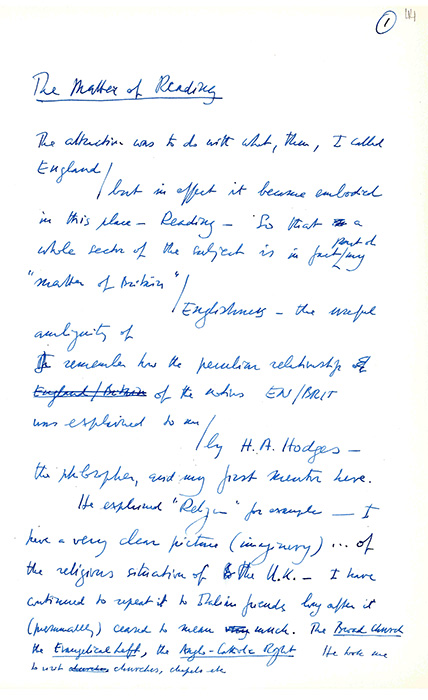 1
The Matter of Reading
The attraction was to do with what, then, I called
England /
but in effect it became embodied
in this place – Reading – So that a
whole sector of the subject is in fact / part of my
"matter of Britain" /
Englishness – the useful
ambiguity of
I remember how the peculiar relationship of
England / Britain of the notions EN/BRIT
was explained to me
/ by H.A. Hodges –
the philosopher, and my first mentor here.
He explained "Religion" for example – I
have a very clear picture (imaginary) ... of
the religious situation of the U.K. – I have
continued to repeat it to Italian friends long after it
(presumably) ceased to mean very much. The Broad Church
the Evangelical Left, the Anglo-Catholic Right He took me
to visit churches churches, chapels etc